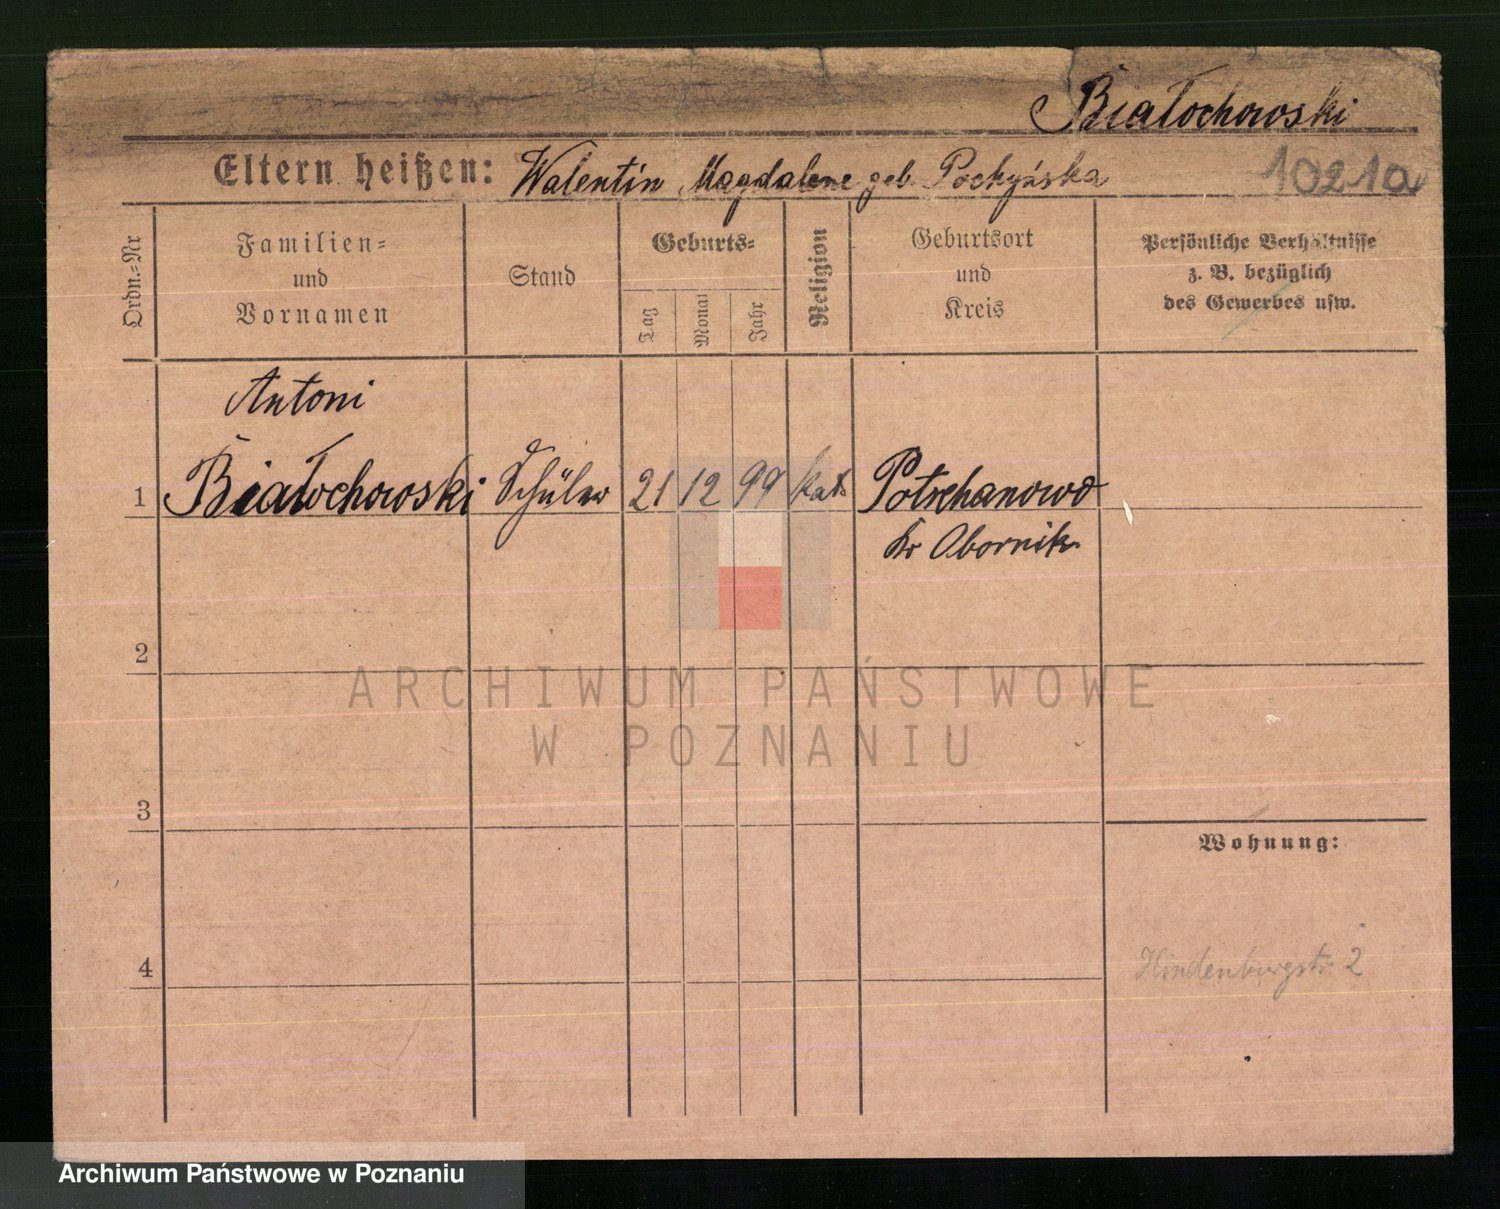 Białochowski
Eltern heißen: Walentin, Magdalene geb. Pochyńska
1021a
Ordn.=Nr
Familien=
und
Vornamen
Stand
Geburts=
Tag
Monat
Jahr
Religion
Geburtsort
und
Kreis
Persönliche Verhältnisse
z. B. bezüglich
des Gewerbes usw.
Antoni
1 Białochowski Schüler 21 12 99 kat. Potrchanowo
Kr Obornik.
2
3
4
Wohnung:
Hindenburgstr 2
ARCHIWUM PAŃSTWOWE
W POZNANIU
Archiwum Państwowe w Poznaniu